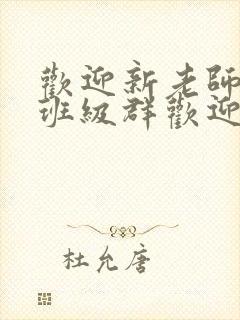 歡迎新老師
班級群歡迎
杜允唐